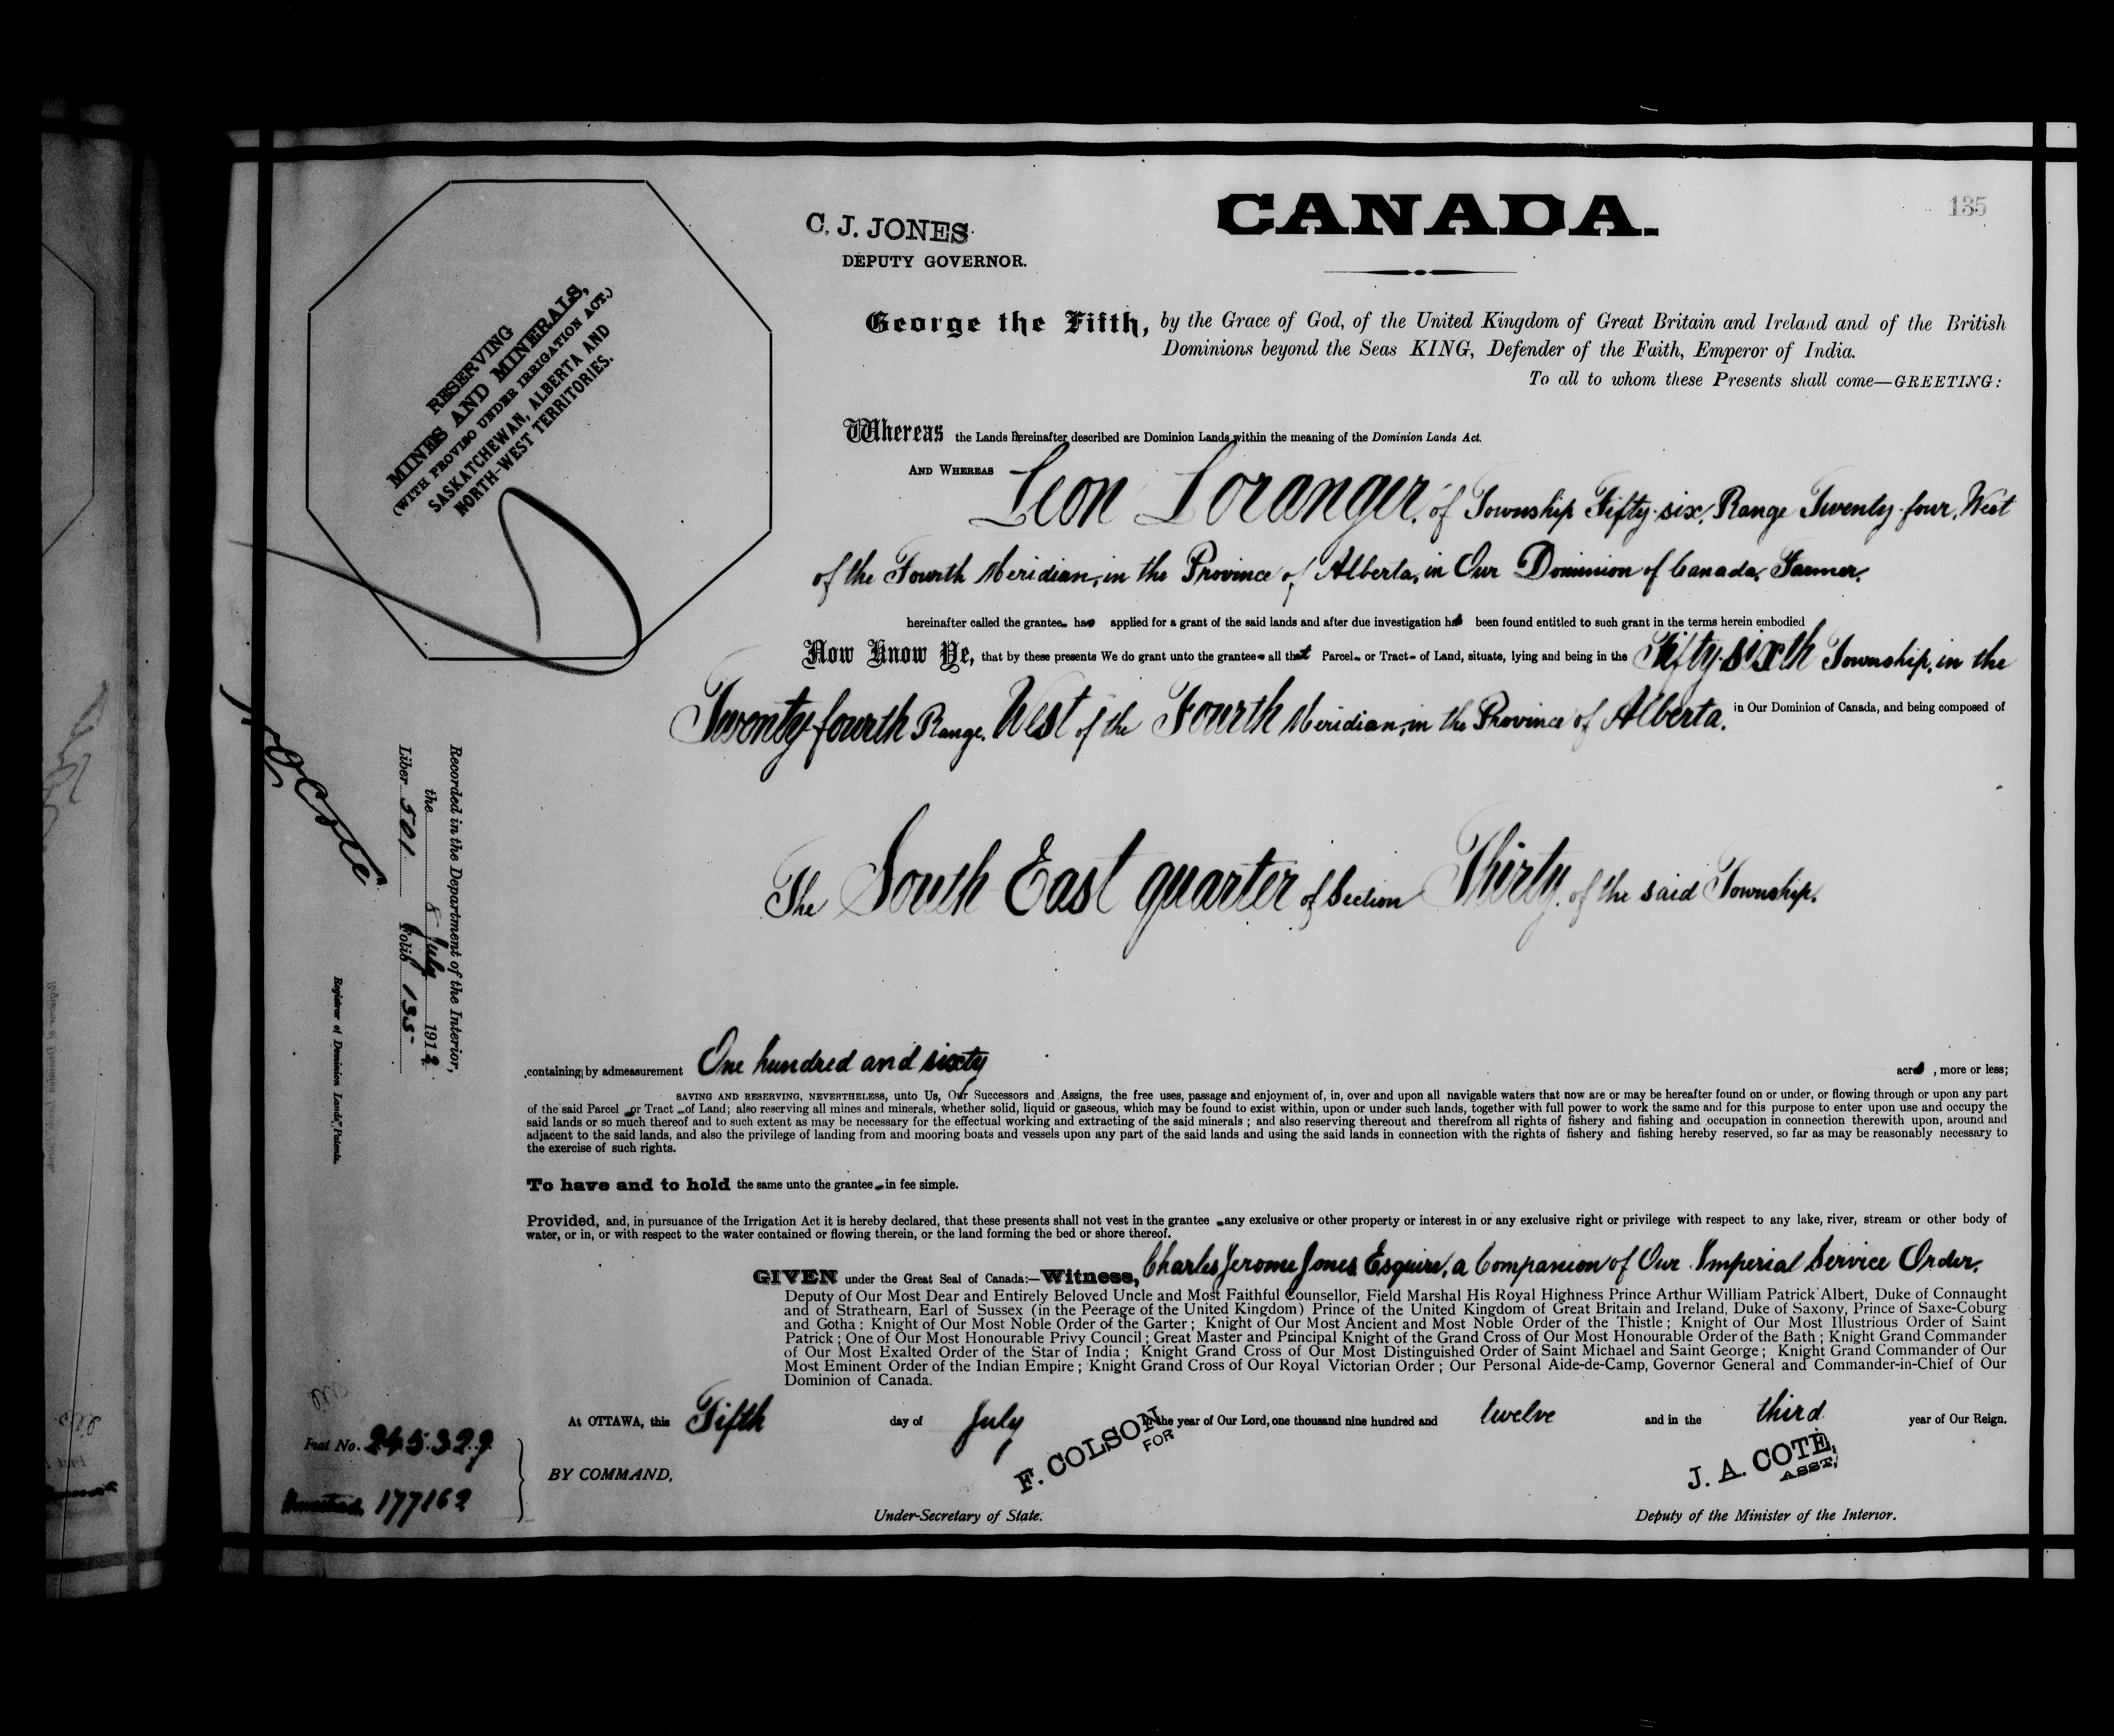 CANADA.
135
C. J. JONES
DEPUTY GOVERNOR.
RESERVING
MINES AND MINERALS,
(WITH PROVISO UNDER IRRIGATION ACT.)
SASKATCHEWAN, ALBERTA AND
NORTH-WEST TERRITORIES.
George the Fifth, by the Grace of God, of the United Kingdom of Great Britain and Ireland and of the British
Dominions beyond the Seas KING, Defender of the Faith, Emperor of India.
To all to whom these Presents shall come—GREETING:
Whereas the Lands hereinafter described are Dominion Lands within the meaning of the Dominion Lands Act.
AND WHEREAS Leon Loranger, of Township Fifty-six, Range Twenty-four, West
of the Fourth Meridian, in the Province of Alberta, in Our Dominion of Canada, Farmer,
hereinafter called the grantee has applied for a grant of the said lands and after due investigation has been found entitled to such grant in the terms herein embodied
Now Know Ye, that by these presents We do grant unto the grantee all that Parcel or Tract of Land, situate, lying and being in the Fifty-sixth Township, in the
Twenty-fourth Range, West of the Fourth Meridian, in the Province of Alberta, in Our Dominion of Canada, and being composed of
The South East quarter of Section Thirty, of the said Township.
containing by admeasurement One hundred and sixty acres, more or less;
SAVING AND RESERVING, NEVERTHELESS, unto Us, Our Successors and Assigns, the free uses, passage and enjoyment of, in, over and upon all navigable waters that now are or may be hereafter found on or under, or flowing through or upon any part
of the said Parcel or Tract of Land; also reserving all mines and minerals, whether solid, liquid or gaseous, which may be found to exist within, upon or under such lands, together with full power to work the same and for this purpose to enter upon use and occupy the
said lands or so much thereof and to such extent as may be necessary for the effectual working and extracting of the said minerals; and also reserving thereout and therefrom all rights of fishery and fishing and occupation in connection therewith upon, around and
adjacent to the said lands, and also the privilege of landing from and mooring boats and vessels upon any part of the said lands and using the said lands in connection with the rights of fishery and fishing hereby reserved, so far as may be reasonably necessary to
the exercise of such rights.
To have and to hold the same unto the grantee in fee simple.
Provided, and, in pursuance of the Irrigation Act it is hereby declared, that these presents shall not vest in the grantee any exclusive or other property or interest in or any exclusive right or privilege with respect to any lake, river, stream or other body of
water, or in, or with respect to the water contained or flowing therein, or the land forming the bed or shore thereof.
GIVEN under the Great Seal of Canada:—Witness, Charles Jerome Jones Esquire, a Companion of Our Imperial Service Order,
Deputy of Our Most Dear and Entirely Beloved Uncle and Most Faithful Counsellor, Field Marshal His Royal Highness Prince Arthur William Patrick Albert, Duke of Connaught
and of Strathearn, Earl of Sussex (in the Peerage of the United Kingdom) Prince of the United Kingdom of Great Britain and Ireland, Duke of Saxony, Prince of Saxe-Coburg
and Gotha: Knight of Our Most Noble Order of the Garter; Knight of Our Most Ancient and Most Noble Order of the Thistle; Knight of Our Most Illustrious Order of Saint
Patrick; One of Our Most Honourable Privy Council; Great Master and Principal Knight of the Grand Cross of Our Most Honourable Order of the Bath; Knight Grand Commander
of Our Most Exalted Order of the Star of India; Knight Grand Cross of Our Most Distinguished Order of Saint Michael and Saint George; Knight Grand Commander of Our
Most Eminent Order of the Indian Empire; Knight Grand Cross of Our Royal Victorian Order; Our Personal Aide-de-Camp, Governor General and Commander-in-Chief of Our
Dominion of Canada.
At OTTAWA, this Fifth day of July in the year of Our Lord, one thousand nine hundred and twelve and in the third year of Our Reign.
BY COMMAND,
F. COLSON
FOR
Under-Secretary of State.
J. A. COTE,
ASST.
Deputy of the Minister of the Interior.
Recorded in the Department of the Interior,
the 8 July 1912
Liber 501 Folio 135
Registrar of Dominion Lands Patents.
No. 245329
Homestead 177162